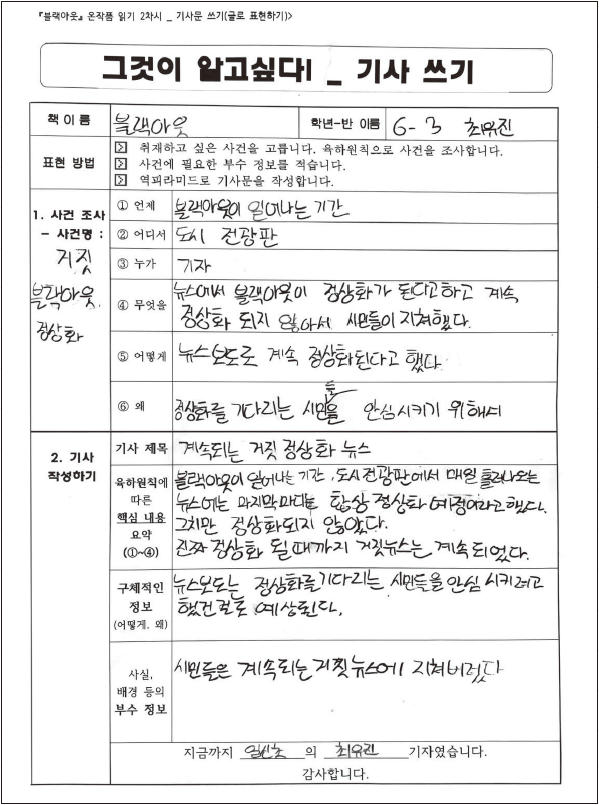 『블랙아웃』 온작품 읽기 2차시 _ 기사문 쓰기(글로 표현하기)>
그것이 알고싶다! _ 기사 쓰기
책 이름 블랙아웃 학년-반 이름 6-3 최유진
표현 방법
▷ 취재하고 싶은 사건을 고릅니다. 육하원칙으로 사건을 조사합니다.
▷ 사건에 필요한 부수 정보를 적습니다.
▷ 역피라미드로 기사문을 작성합니다.
1. 사건 조사
- 사건명 :
거짓
블랙아웃
정상화
① 언제 블랙아웃이 일어나는 기간
② 어디서 도시 전광판
③ 누가 기자
④ 무엇을 뉴스에서 블랙아웃이 정상화가 된다고하고 계속
정상화 되지 않아서 시민들이 지쳐했다.
⑤ 어떻게 뉴스보도로 계속 정상화된다고 했다
⑥ 왜 정상화를 기다리는 시민들을 안심시키기 위해서
2. 기사
작성하기
기사 제목 계속되는 거짓 정상화 뉴스
육하원칙에
따른
핵심 내용
요약
(①~④)
블랙아웃이 일어나는 기간, 도시전광판에서 매일 흘러나오는
뉴스에는 마지막마다 항상 정상화 예정이라고했다.
그치만 정상화되지 않았다.
진짜 정상화 될때까지 거짓뉴스는 계속되었다.
구체적인
정보
(어떻게, 왜)
뉴스보도는 정상화를기다리는 시민들을 안심시키려고
했던걸로 예상된다.
사실,
배경 등의
부수 정보
시민들은 계속되는거짓뉴스에 지쳐버렸다
지금까지 임신초 의 최유진 기자였습니다.
감사합니다.